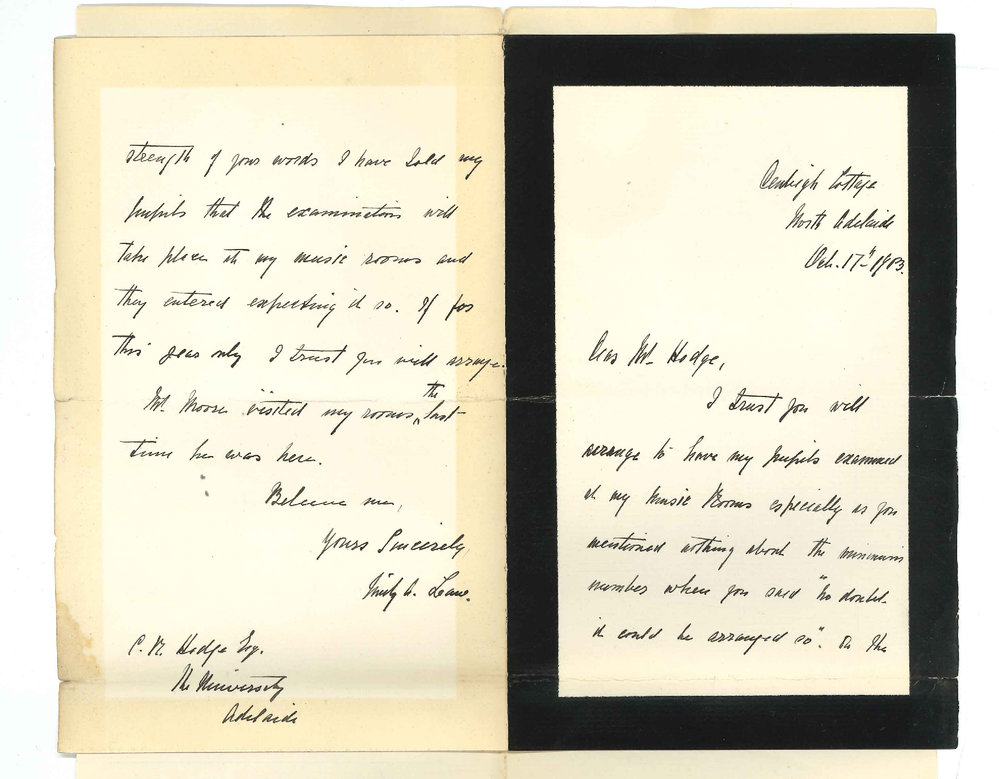 Cottage
North Adelaide
Oct. 17" 1903.
Dear Mr. Hodge,
I trust you will
arrange to have my pupils examined
at my Music Rooms especially as you
mentioned nothing about the minimum
number when you said "no doubt
it could be arranged so". On the
strength of your words I have told my
pupils that the examinations will
take place at my music rooms and
they entered expecting it so. If for
this year only I trust you will arrange.
Mr. Moore visited my rooms, the last
time he was here.
Believe me,
Yours Sincerely
C. R. Hodge Esq.
The University
Adelaide